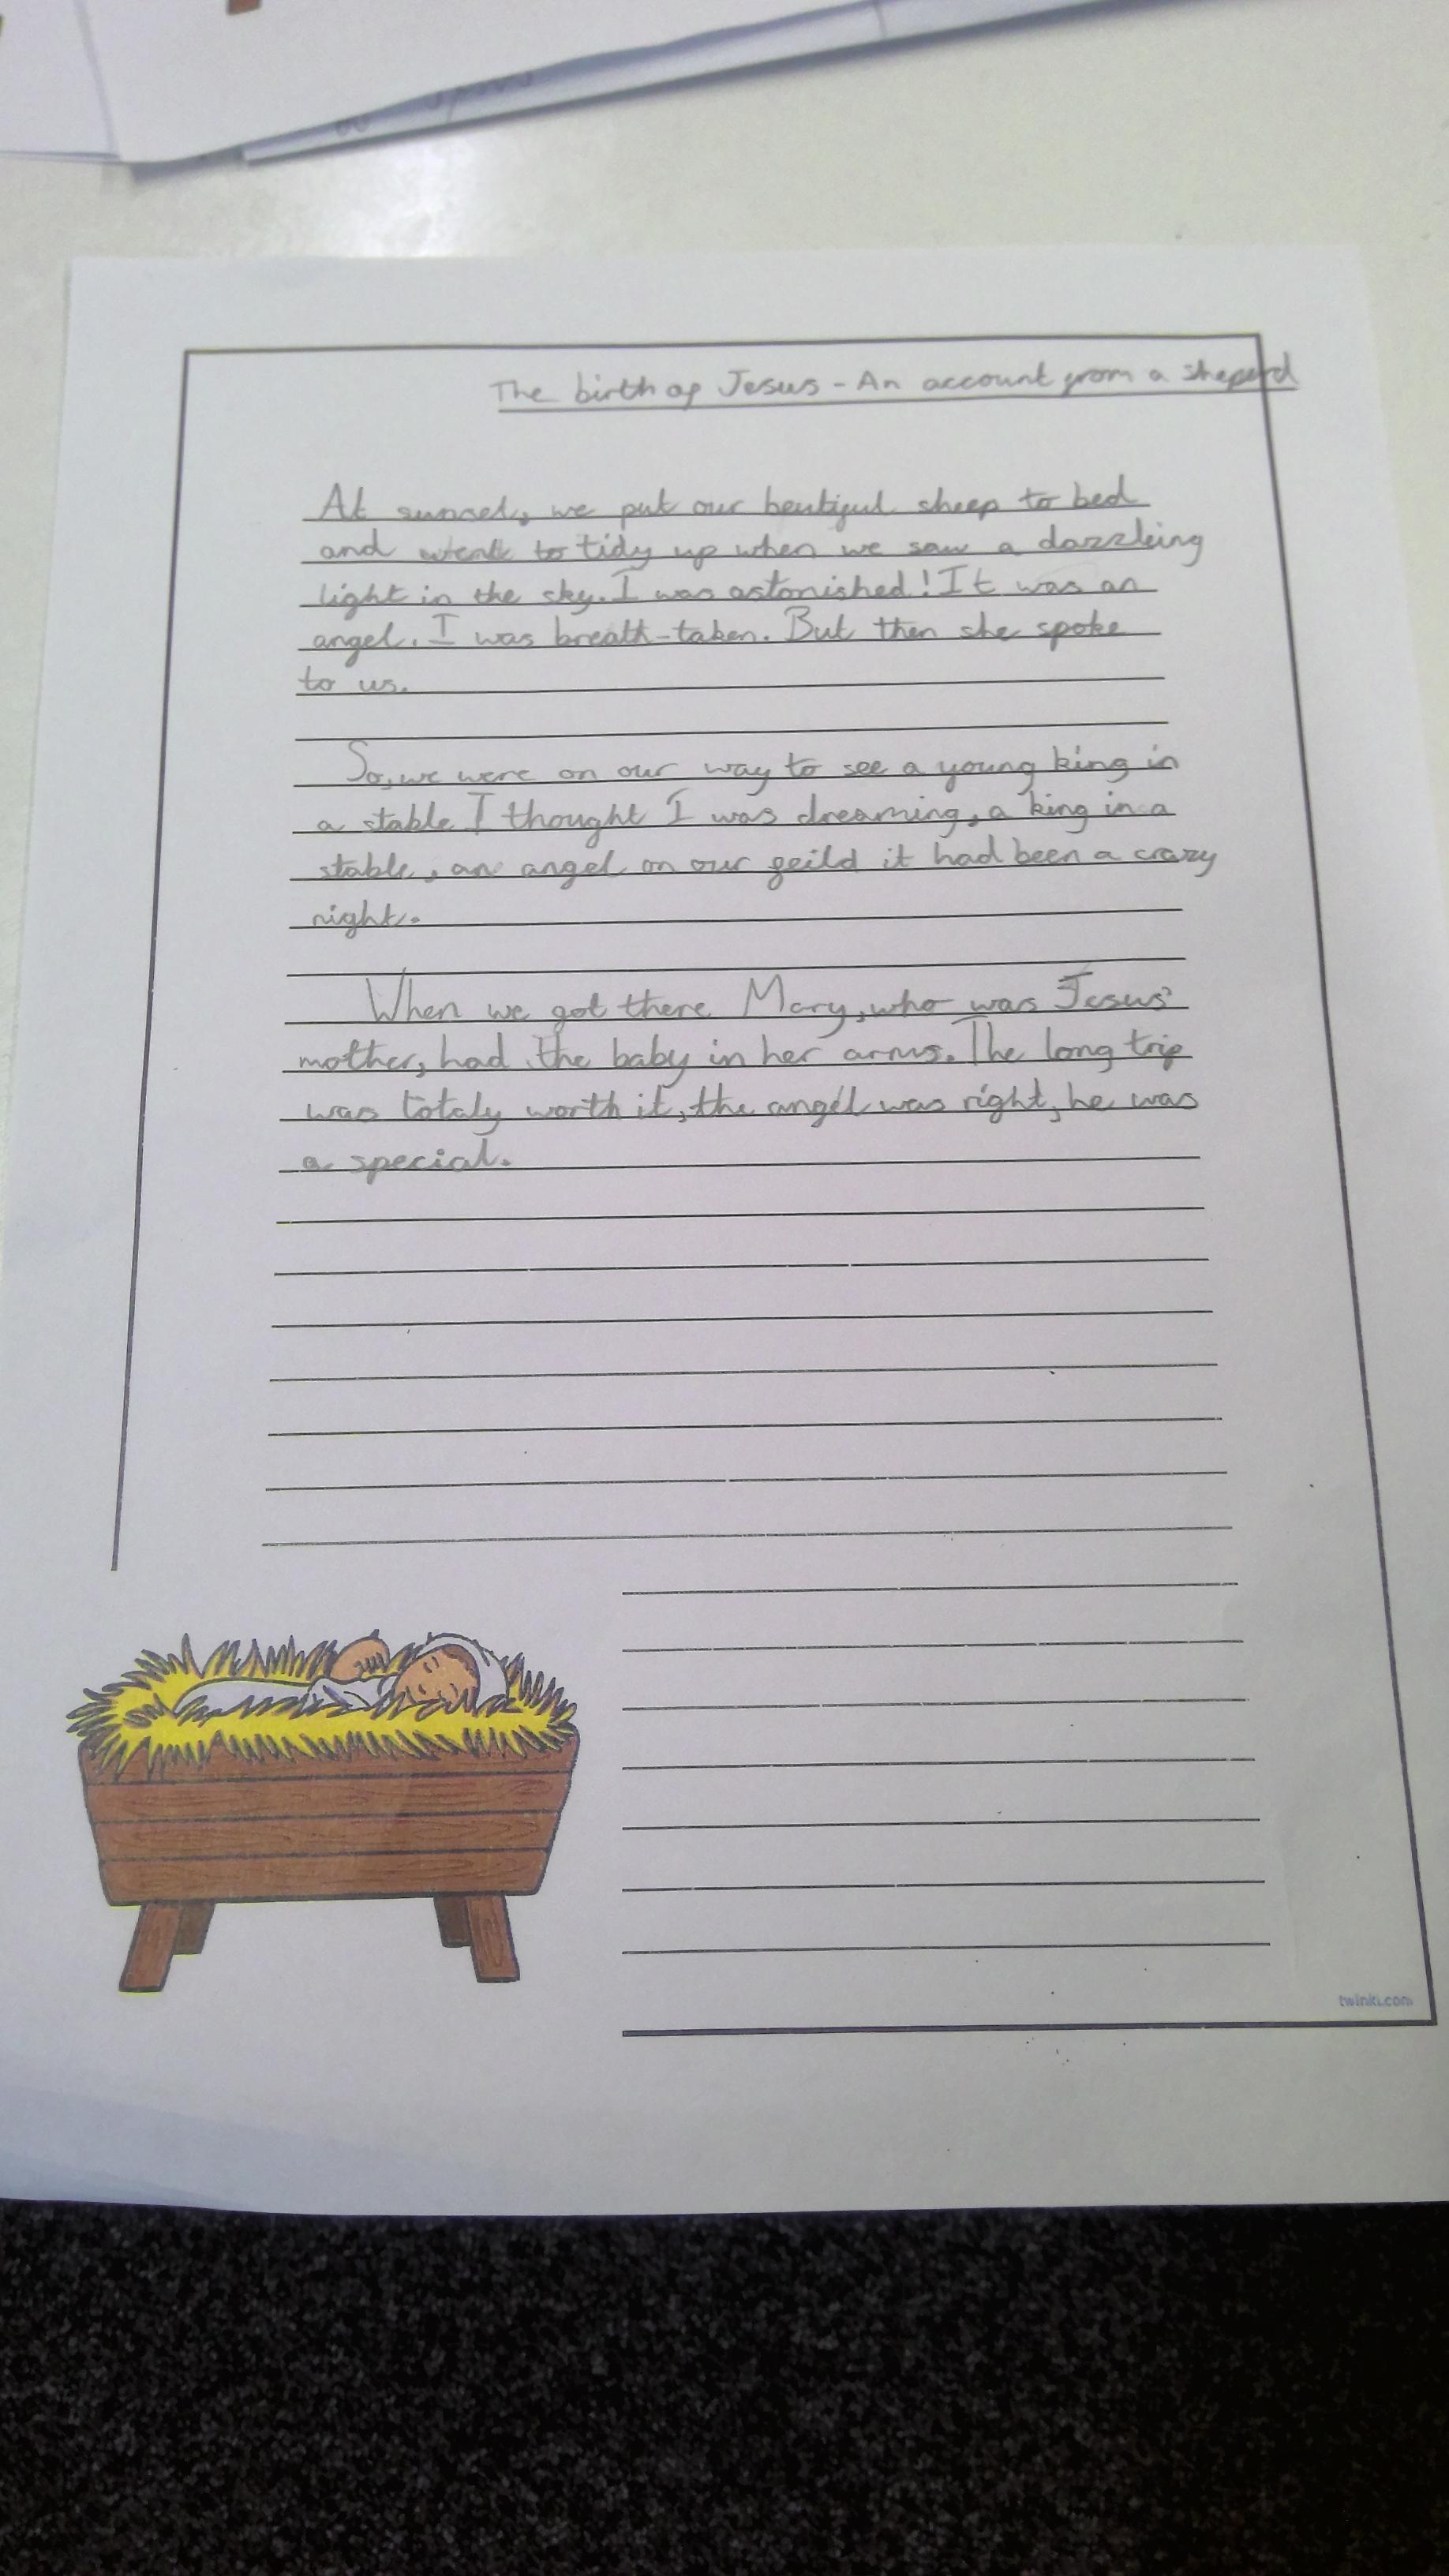 The birth of Jesus - An account from a sheperd
At sunset, we put our beutiful sheep to bed
and went to tidy up when we saw a dazzleing
light in the sky. I was astonished! It was an
angel. I was breath-taken. But then she spoke
to us.
So, we were on our way to see a young king in
a stable I thought I was dreaming, a king in a
stable, an angel on our feild it had been a crazy
night.
When we got there Mary, who was Jesus'
mother, had the baby in her arms. The long trip
was totaly worth it, the angel was right, he was
a special.
twinkl.com